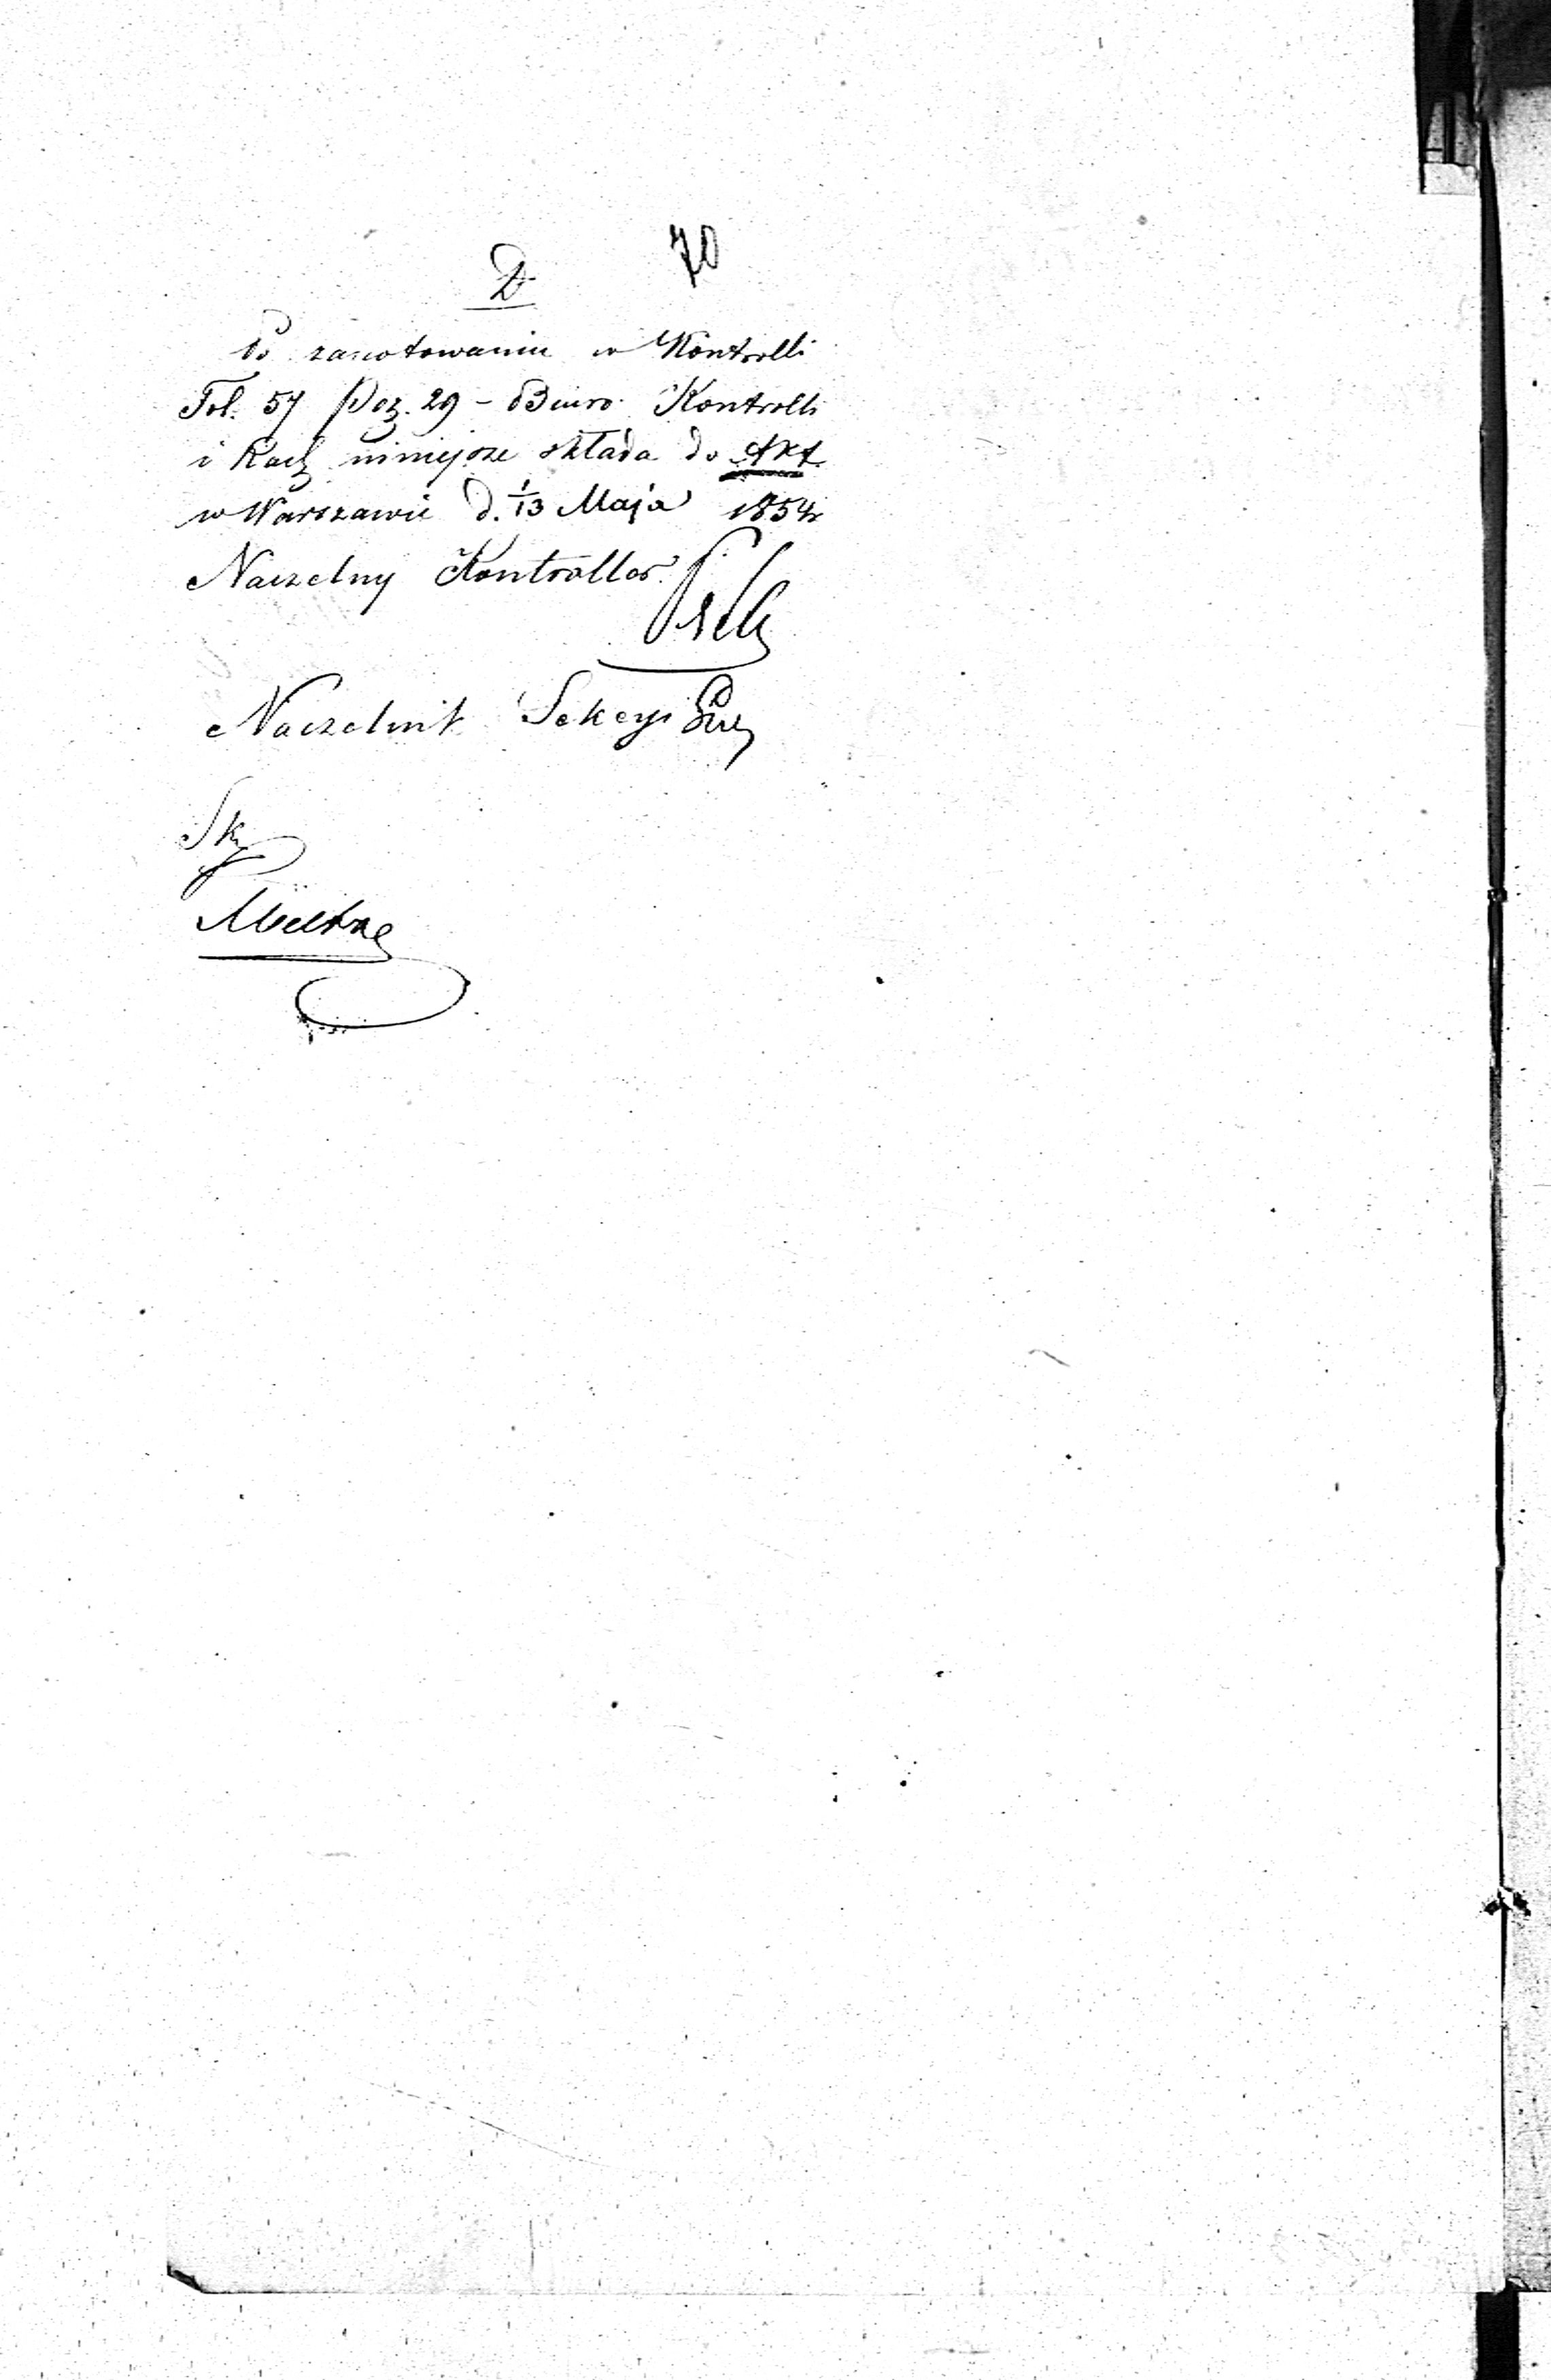 70
D
Po zanotowaniu w Kontrolli
Fol. 57 Poz. 29 – Biuro Kontrolli
i Rach niniejsze składa do Akt
w Warszawie d. 1/13 Maja 1854 r
Naczelny Kontroller
Naczelnik Sekcyi